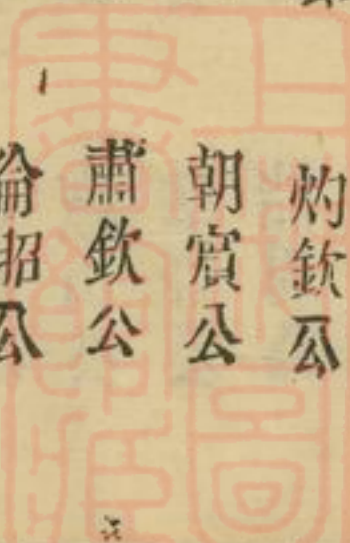 灼欽公
朝賔公
肅欽公
倫招公